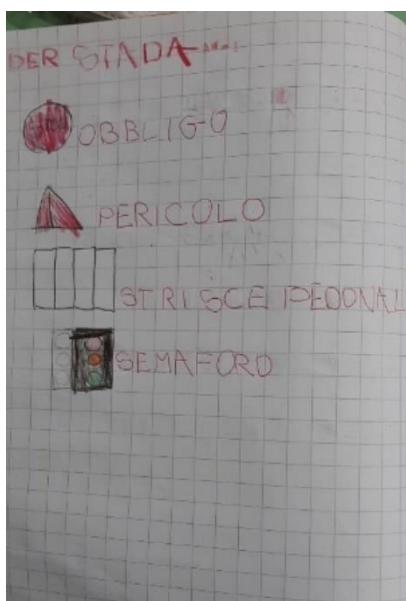 DER STADA....
OBBLIGO
PERICOLO
STRISCE PEDONAL
SEMAFORO